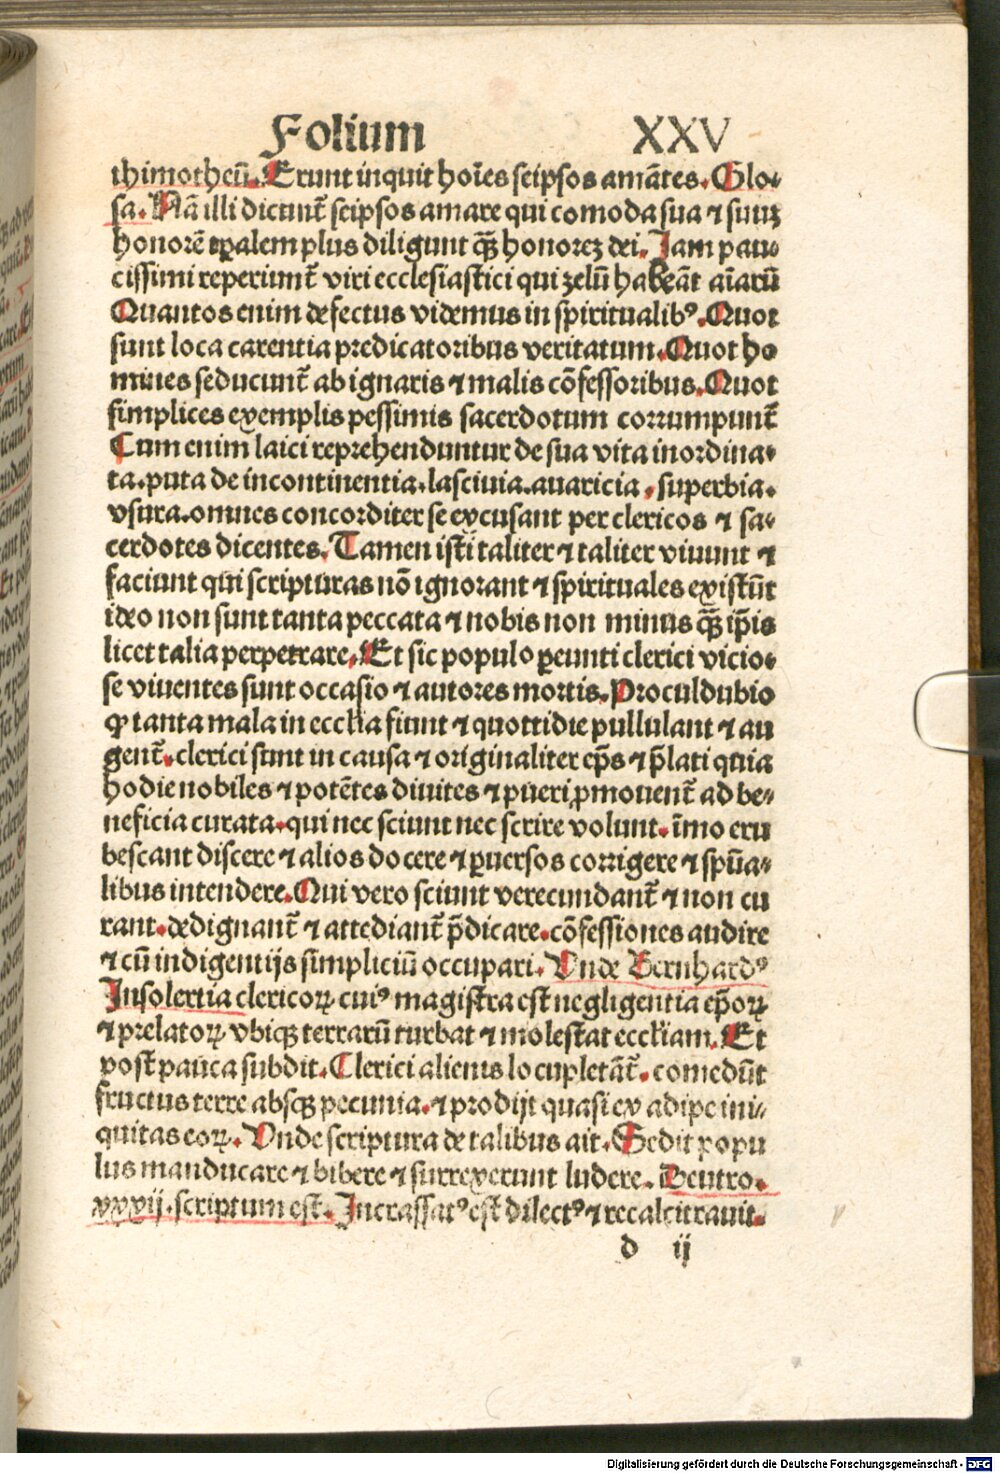 Folium XXV
thimotheū. Erunt inquit hoīes seipsos amātes. Glo-
sa. Nā illi dicunt̄ seipsos amare qui comoda sua ⁊ suuʒ
honorē tꝑalem plus diligunt qȝ̄ honoreʒ dei. Jam pau-
cissimi reperiunt̄ viri ecclesiastici qui zelū habeāt aīarū
Quantos enim defectus videmus in spiritualibꝰ. Quot
sunt loca carentia predicatoribus veritatum. Quot ho
mines seducunt̄ ab ignaris ⁊ malis cōfessoribus. Quot
simplices exemplis pessimis sacerdotum corrumpunt̄
Cum enim laici reprehenduntur de sua vita inordina-
ta. puta de incontinentia. lasciuia. auaricia, superbia.
vsura. omnes concorditer se excusant per clericos ⁊ sa-
cerdotes dicentes. Tamen isti taliter ⁊ taliter viuunt ⁊
faciunt qui scripturas nō ignorant ⁊ spirituales existūt
ideo non sunt tanta peccata ⁊ nobis non minus qȝ̄ ip̄is
licet talia perpetrare. Et sic populo ꝑeunti clerici vicio-
se viuentes sunt occasio ⁊ autores mortis. Proculdubio
ꝙ tanta mala in eccl̄ia fiunt ⁊ quottidie pullulant ⁊ au
gent̄. clerici sunt in causa ⁊ originaliter ep̄s ⁊ p̄lati quia
hodie nobiles ⁊ potētes diuites ⁊ pueri ꝓmouent̄ ad be-
neficia curata. qui nec sciunt nec scrire volunt. īmo eru
bescant discere ⁊ alios docere ⁊ ꝑuersos corrigere ⁊ spūa-
libus intendere. Qui vero sciunt verecundant̄ ⁊ non cu
rant. dedignant̄ ⁊ attediant̄ p̄dicare. cōfessiones audire
⁊ cū indigentijs simpliciū occupari. Vnde Bernhardꝰ
Insolertia clericoꝝ cuiꝰ magistra est negligentia ep̄oꝝ
⁊ prelatoꝝ vbiqȝ terrarū turbat ⁊ molestat eccl̄iam. Et
post pauca subdit. Clerici alienis locupletāt̄. comedūt
fructus terre absqȝ pecunia. ⁊ prodijt quasi ex adipe ini-
quitas eoꝝ. Vnde scriptura de talibus ait. Sedit popu
lus manducare ⁊ bibere ⁊ surrexerunt ludere. Deutro.
xxxij. scriptum est. Incrassatꝰ est dilectꝰ ⁊ recalcitrauit.
d ij
Digitalisierung gefördert durch die Deutsche Forschungsgemeinschaft - DFG